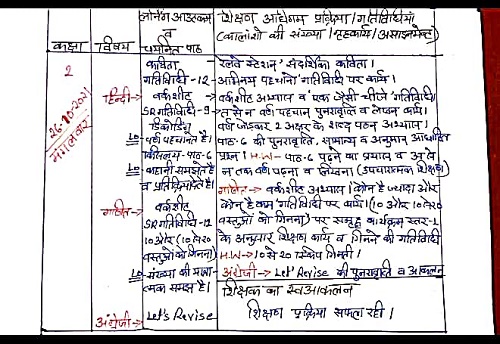 लर्निंग आउटकम व चयनित पाठ
शिक्षण अधिगम प्रक्रिया/गतिविधियाँ
(कालांशों की संख्या/गृहकार्य/असाइनमेंट)
कक्षा
विषय
2
26-10-2021
मंगलवार
हिन्दी→
कविता
गतिविधि-12
वर्कशीट
SR गतिविधि-9
डिकोडिंग
LO वर्ण पहचानते हैं।
पाठ-6
LO कहानी समझते हैं
व प्रतिक्रिया देते हैं।
रेलवे स्टेशन संदर्शिका कविता।
→ अभिनय पहचानो गतिविधि पर कार्य।
→ वर्कशीट अभ्यास व एक जैसी चीजें गतिविधि
→ त से न वर्ण पहचान पुनरावृति व लेखन कार्य।
वर्ण जोड़कर 2 अक्षर के शब्द पठन अभ्यास।
पाठ-6 की पुनरावृति, सामान्य व अनुमान आधारित
प्रश्न। H.W→ पाठ-6 पढ़ने का प्रयास व
न तक वर्ण पढ़ना व लिखना (उपचारात्मक शिक्षण)
गणित→
वर्कशीट
SR गतिविधि-12
10 और (10 से 20
वस्तुओं को गिनना)
LO संख्या की
त्मक समझ है।
गणित→ वर्कशीट अभ्यास। कौन है ज्यादा और
कौन है कम गतिविधि पर कार्य। (10 और 10 से 20
वस्तुओं को गिनना) पर समूह कार्यक्रम स्तर-1
के अनुसार शिक्षण कार्य व गिनने की गतिविधि
H.W→ 10 से 20 गिनती।
अंग्रेजी→ Let's Revise की पुनरावृति व आकलन
शिक्षक का स्वआकलन
अंग्रेजी→ Let's Revise
शिक्षण प्रक्रिया सफल रही।